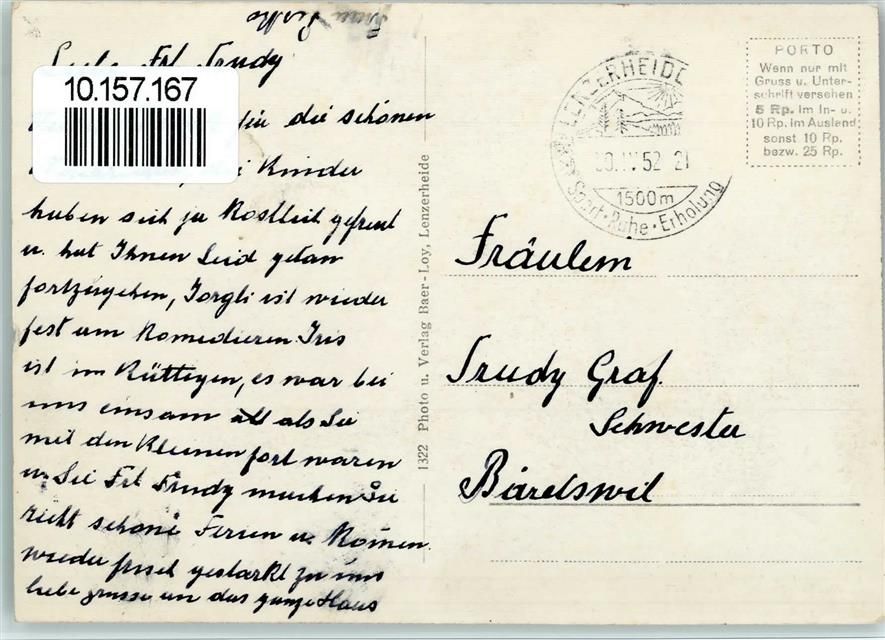 Frl. Trudy
10.157.167
für die schönen
Kinder
haben sich ja köstlich gefreut
u. hat Ihnen Leid getan
fortzugehen, Jörgli ist wieder
fest am Komedieren. Iris
ist im Rüttigen, es war bei
uns einsam als Sie
mit den Kleinen fort waren
u. Sie Frl Trudy machen Sie
recht schöne Ferien u. Komen
wieder frisch gestärkt zu uns
liebe grüsse an das ganze Haus
1322 Photo u. Verlag Baer-Loy, Lenzerheide
LENZERHEIDE
52 21
1500m
Sport-Ruhe-Erholung
PORTO
Wenn nur mit
Gruss u. Unter-
schrift versehen
5 Rp. im In- u.
10 Rp. im Ausland
sonst 10 Rp.
bezw. 25 Rp.
Fräulein
Trudy Graf
Schwester
Bäretswil